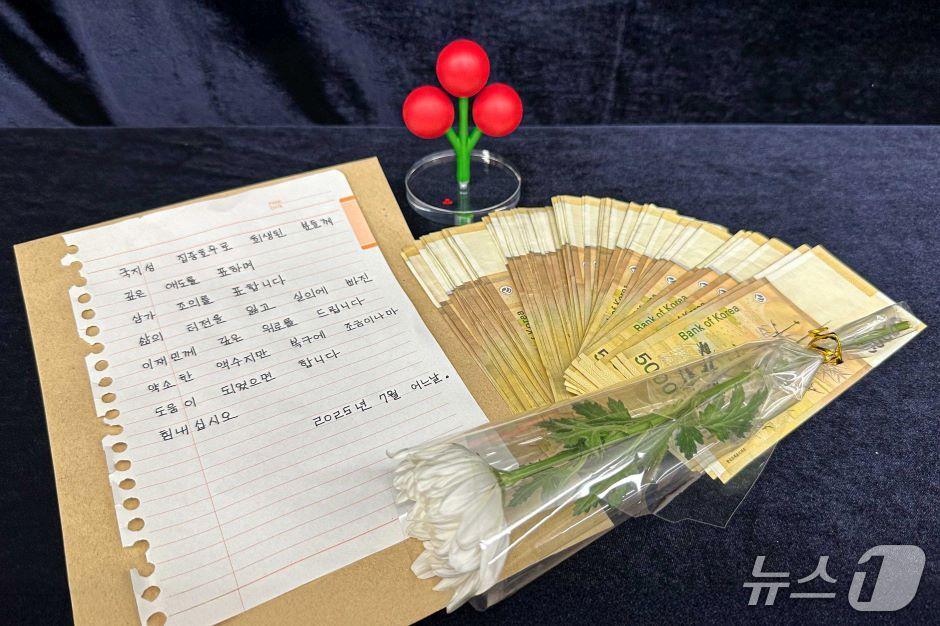 국지성 집중호우로 희생된 분들께
깊은 애도를 표하며
삼가 조의를 표합니다
삶의 터전을 잃고 실의에 빠진
이재민께 깊은 위로를 드립니다
약소한 액수지만 복구에 조금이나마
도움이 되었으면 합니다
힘내십시오
2025년 7월 어느날.
Bank of Korea
Bank of Korea
Bank of Korea
뉴스1